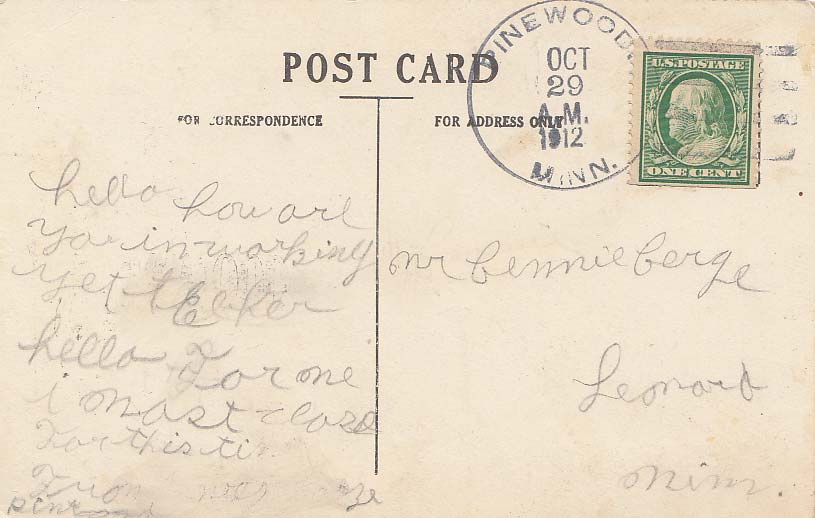 POST CARD
FOR CORRESPONDENCE
FOR ADDRESS ONLY
PINEWOOD,
OCT
29
A.M.
1912
MINN.
U.S. POSTAGE
ONE CENT
hello how are
you in working
yet tell her
hello For me
i most close
For this tim
From
mr bennie berge
Leonard
Minn.